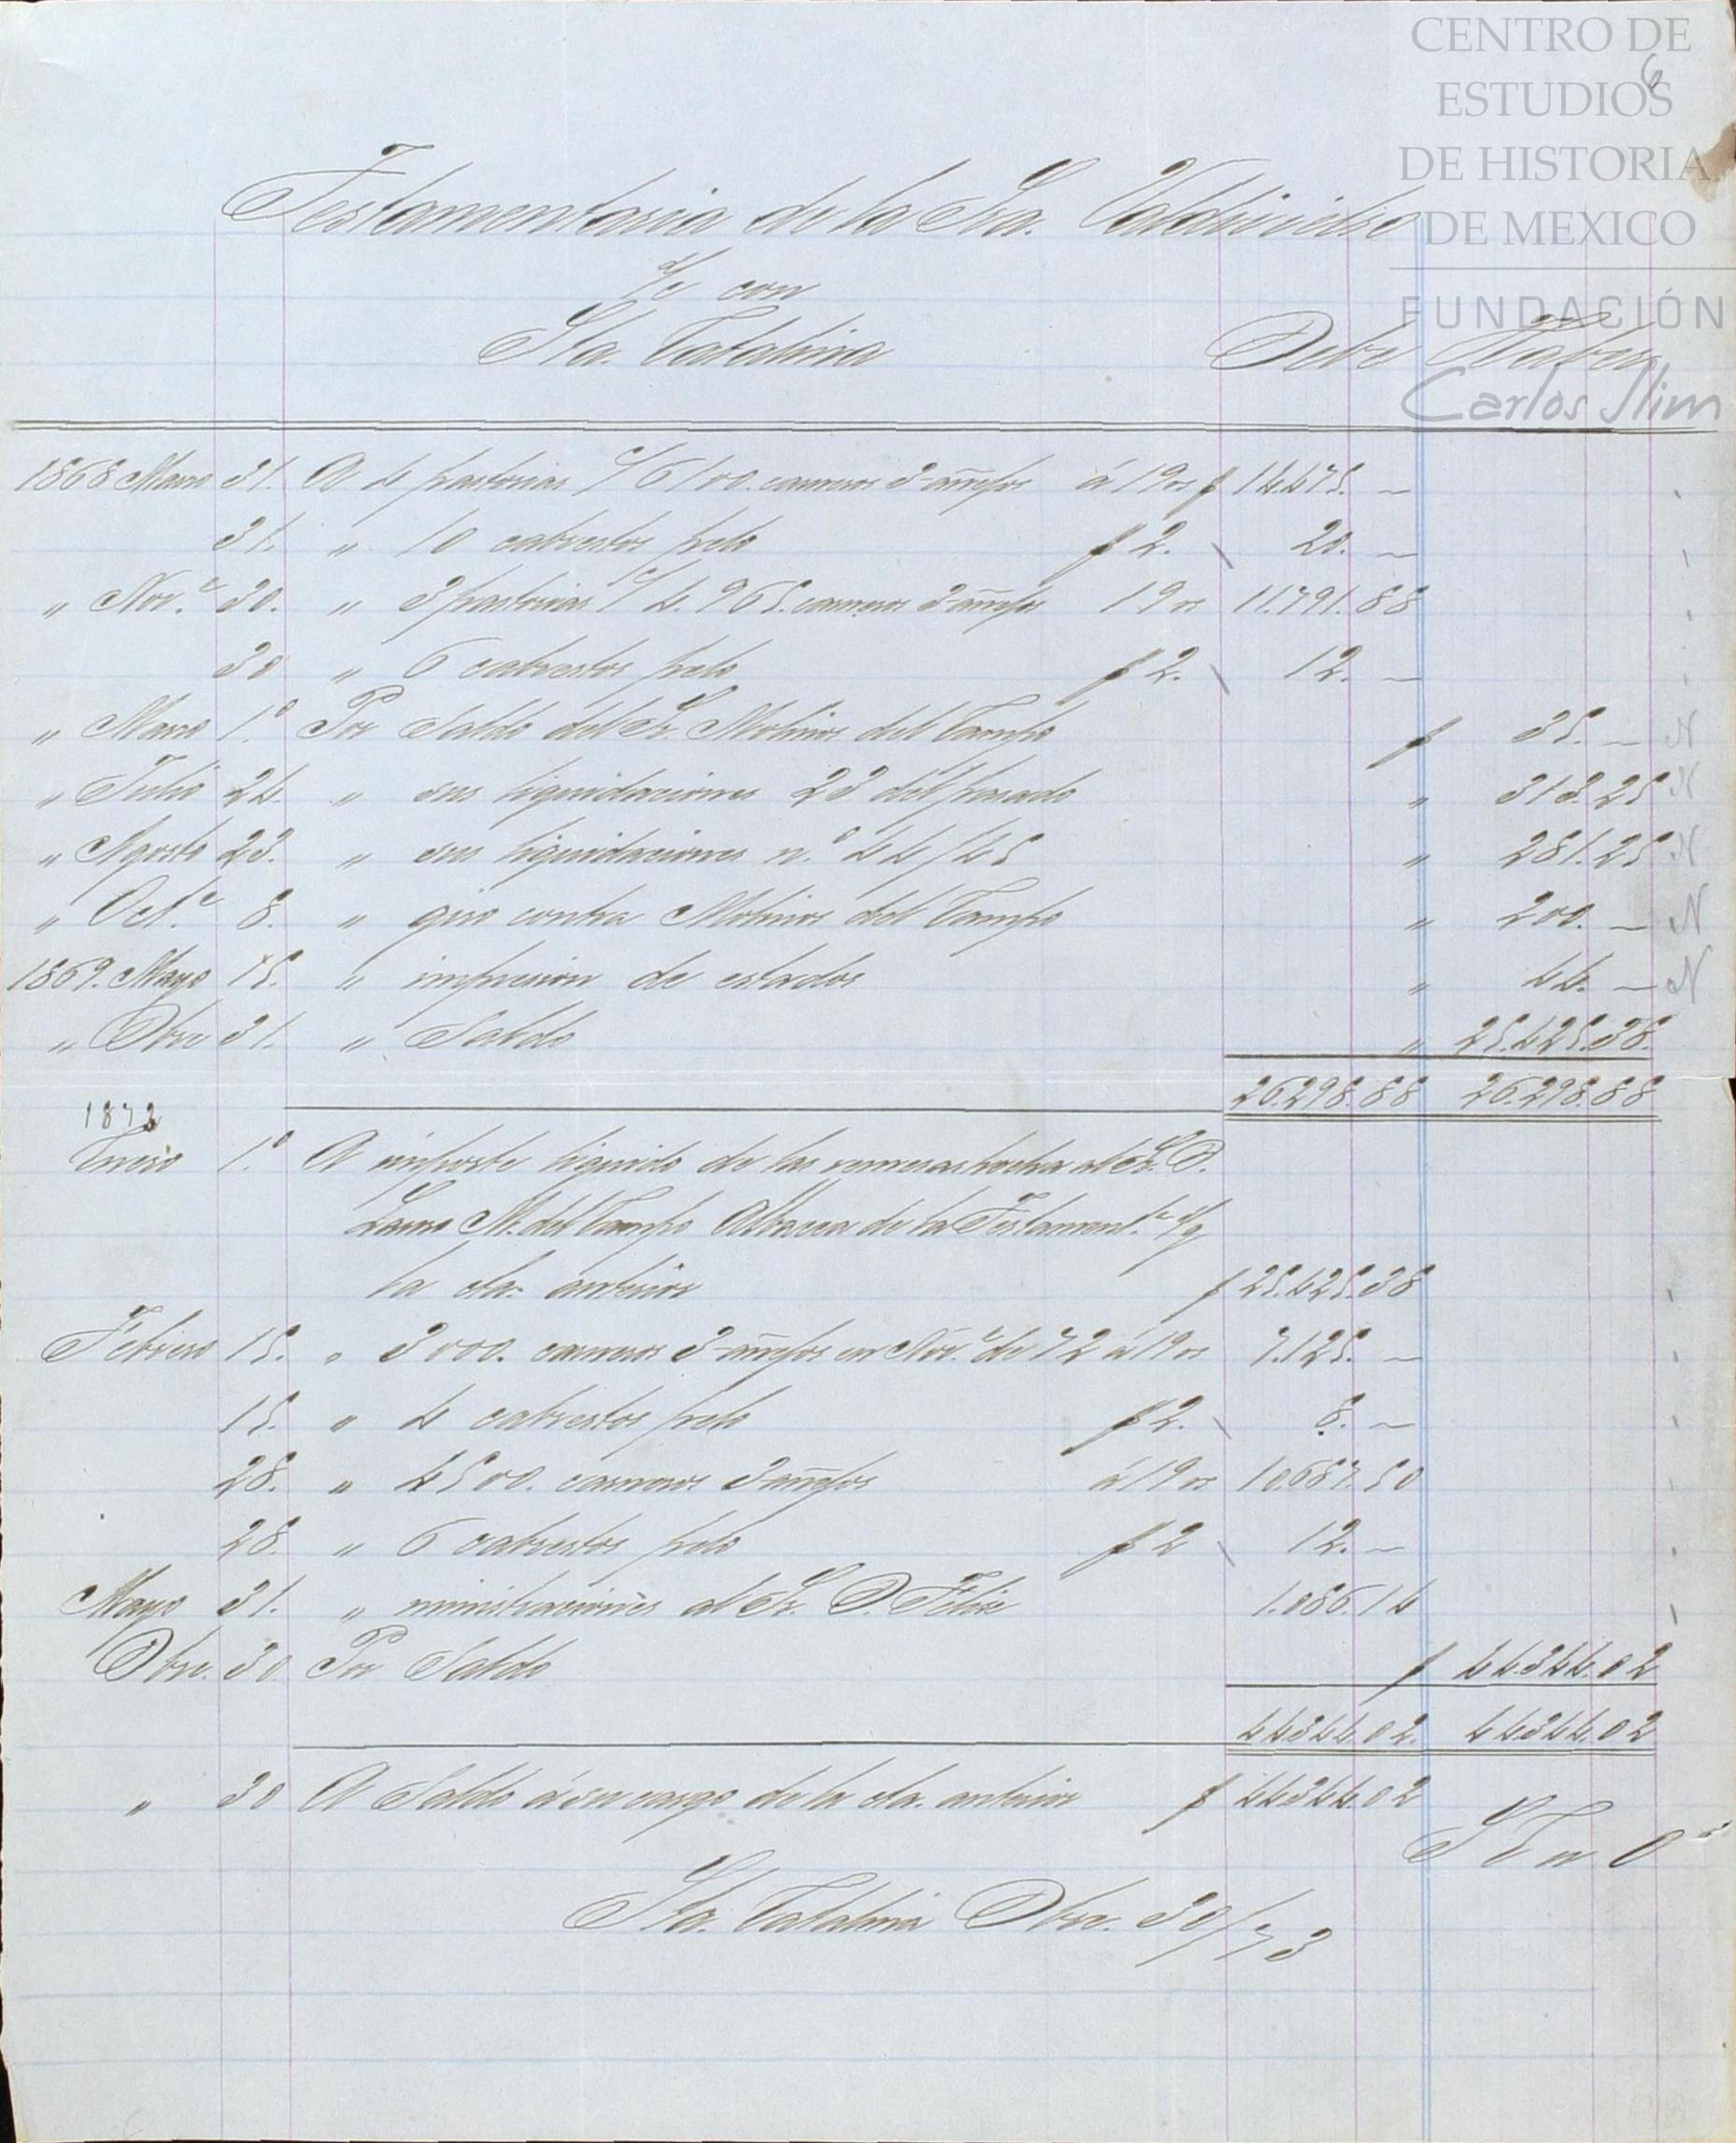 CENTRO DE
ESTUDIOS
DE HISTORIA
DE MEXICO
FUNDACIÓN
Carlos Slim
6
Testamentaria de la Sra. Valdivielso
c/c con
Sta. Catalina Debe Haber
1868 Marzo 31. A 4 pastorias c/ 6100. carneros 3-añejos á 19 rs $ 14.475. —
31. " 10 cabrestos pelo $ 2. 20. —
" Nov.e 30. " 3 pastorias c/ 4.965. carneros 3-añejos 19 rs 11.791.88
30 " 6 cabrestos pelo $ 2. 12. —
" Marzo 1.º Por Saldo del Sr. Molinos del Campo $ 35. — N
" Julio 24. " sus liquidaciones 23 del pasado " 313.25 N
" Agosto 23. " sus liquidaciones n.º 44/45 " 281.25 N
" Oct.e 8. " giro contra Molinos del Campo " 200. — N
1869. Mayo 15. " impresion de estados " 44. — N
" Dbre 31. " Saldo " 25.425.38.
26.298.88 26.298.88
1873
Enero 1.º A importe liquido de las remesas hecha al Sr. D.
Lauro M. del Campo Albacea de la Testament.a s/g
la cta. anterior $ 25.425.38
Febrero 15. " 3000. carneros 3-añejos en Nov.e de 72 á 19 rs 7.125. —
15. " 4 cabrestos pelo $ 2. 8. —
28. " 4500. carneros 3-añejos á 19 rs 10.687.50
28. " 6 cabrestos pelo $ 2 12. —
Mayo 31. " ministraciones al Sr. D. Felix 1.086.14
Dbre. 30. Por Saldo $ 44.344.02
44.344.02. 44.344.02
" 30 A Saldo á su cargo de la cta. anterior $ 44.344.02
Sta. Catalina Dbre. 30/73